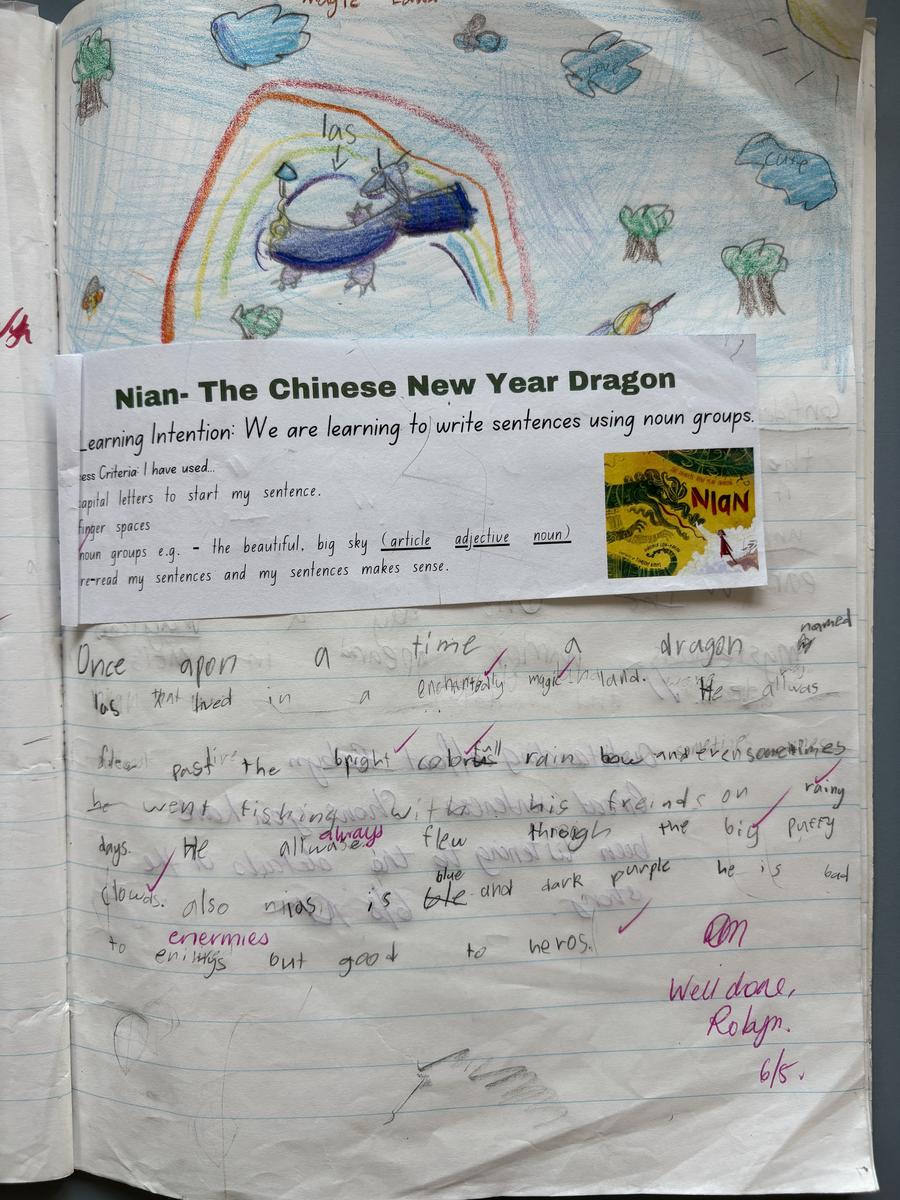 Magic Land
pour
cute
las
Nian- The Chinese New Year Dragon
Learning Intention: We are learning to write sentences using noun groups.
ess Criteria: I have used...
apital letters to start my sentence.
finger spaces
noun groups e.g. - the beautiful, big sky (article adjective noun)
re-read my sentences and my sentences makes sense.
NIAN
named
Once apon a time a dragon
las that lived in a enchantedly magic land. He allwas
past the bright colorfull rain bow and even sometimes
he went fishing with his freinds on rainy
always
days. He allwase flew through the big puffy
blue
clowds. also nias is ble and dark purple he is bad
enermies
to enimys but good to heros.
Well done,
Robyn.
6/5.